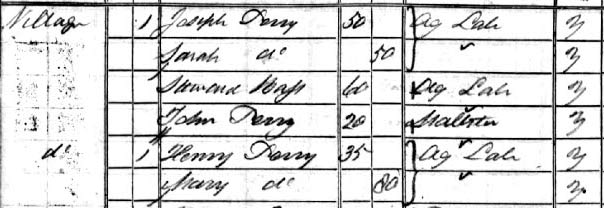 Village 1 Joseph Perry 50 Ag Lab y
Sarah do 50 y
Steward Hass 60 Ag Lab y
John Perry 20 y
do 1 Henry Perry 35 Ag Lab y
Mary do 80 y